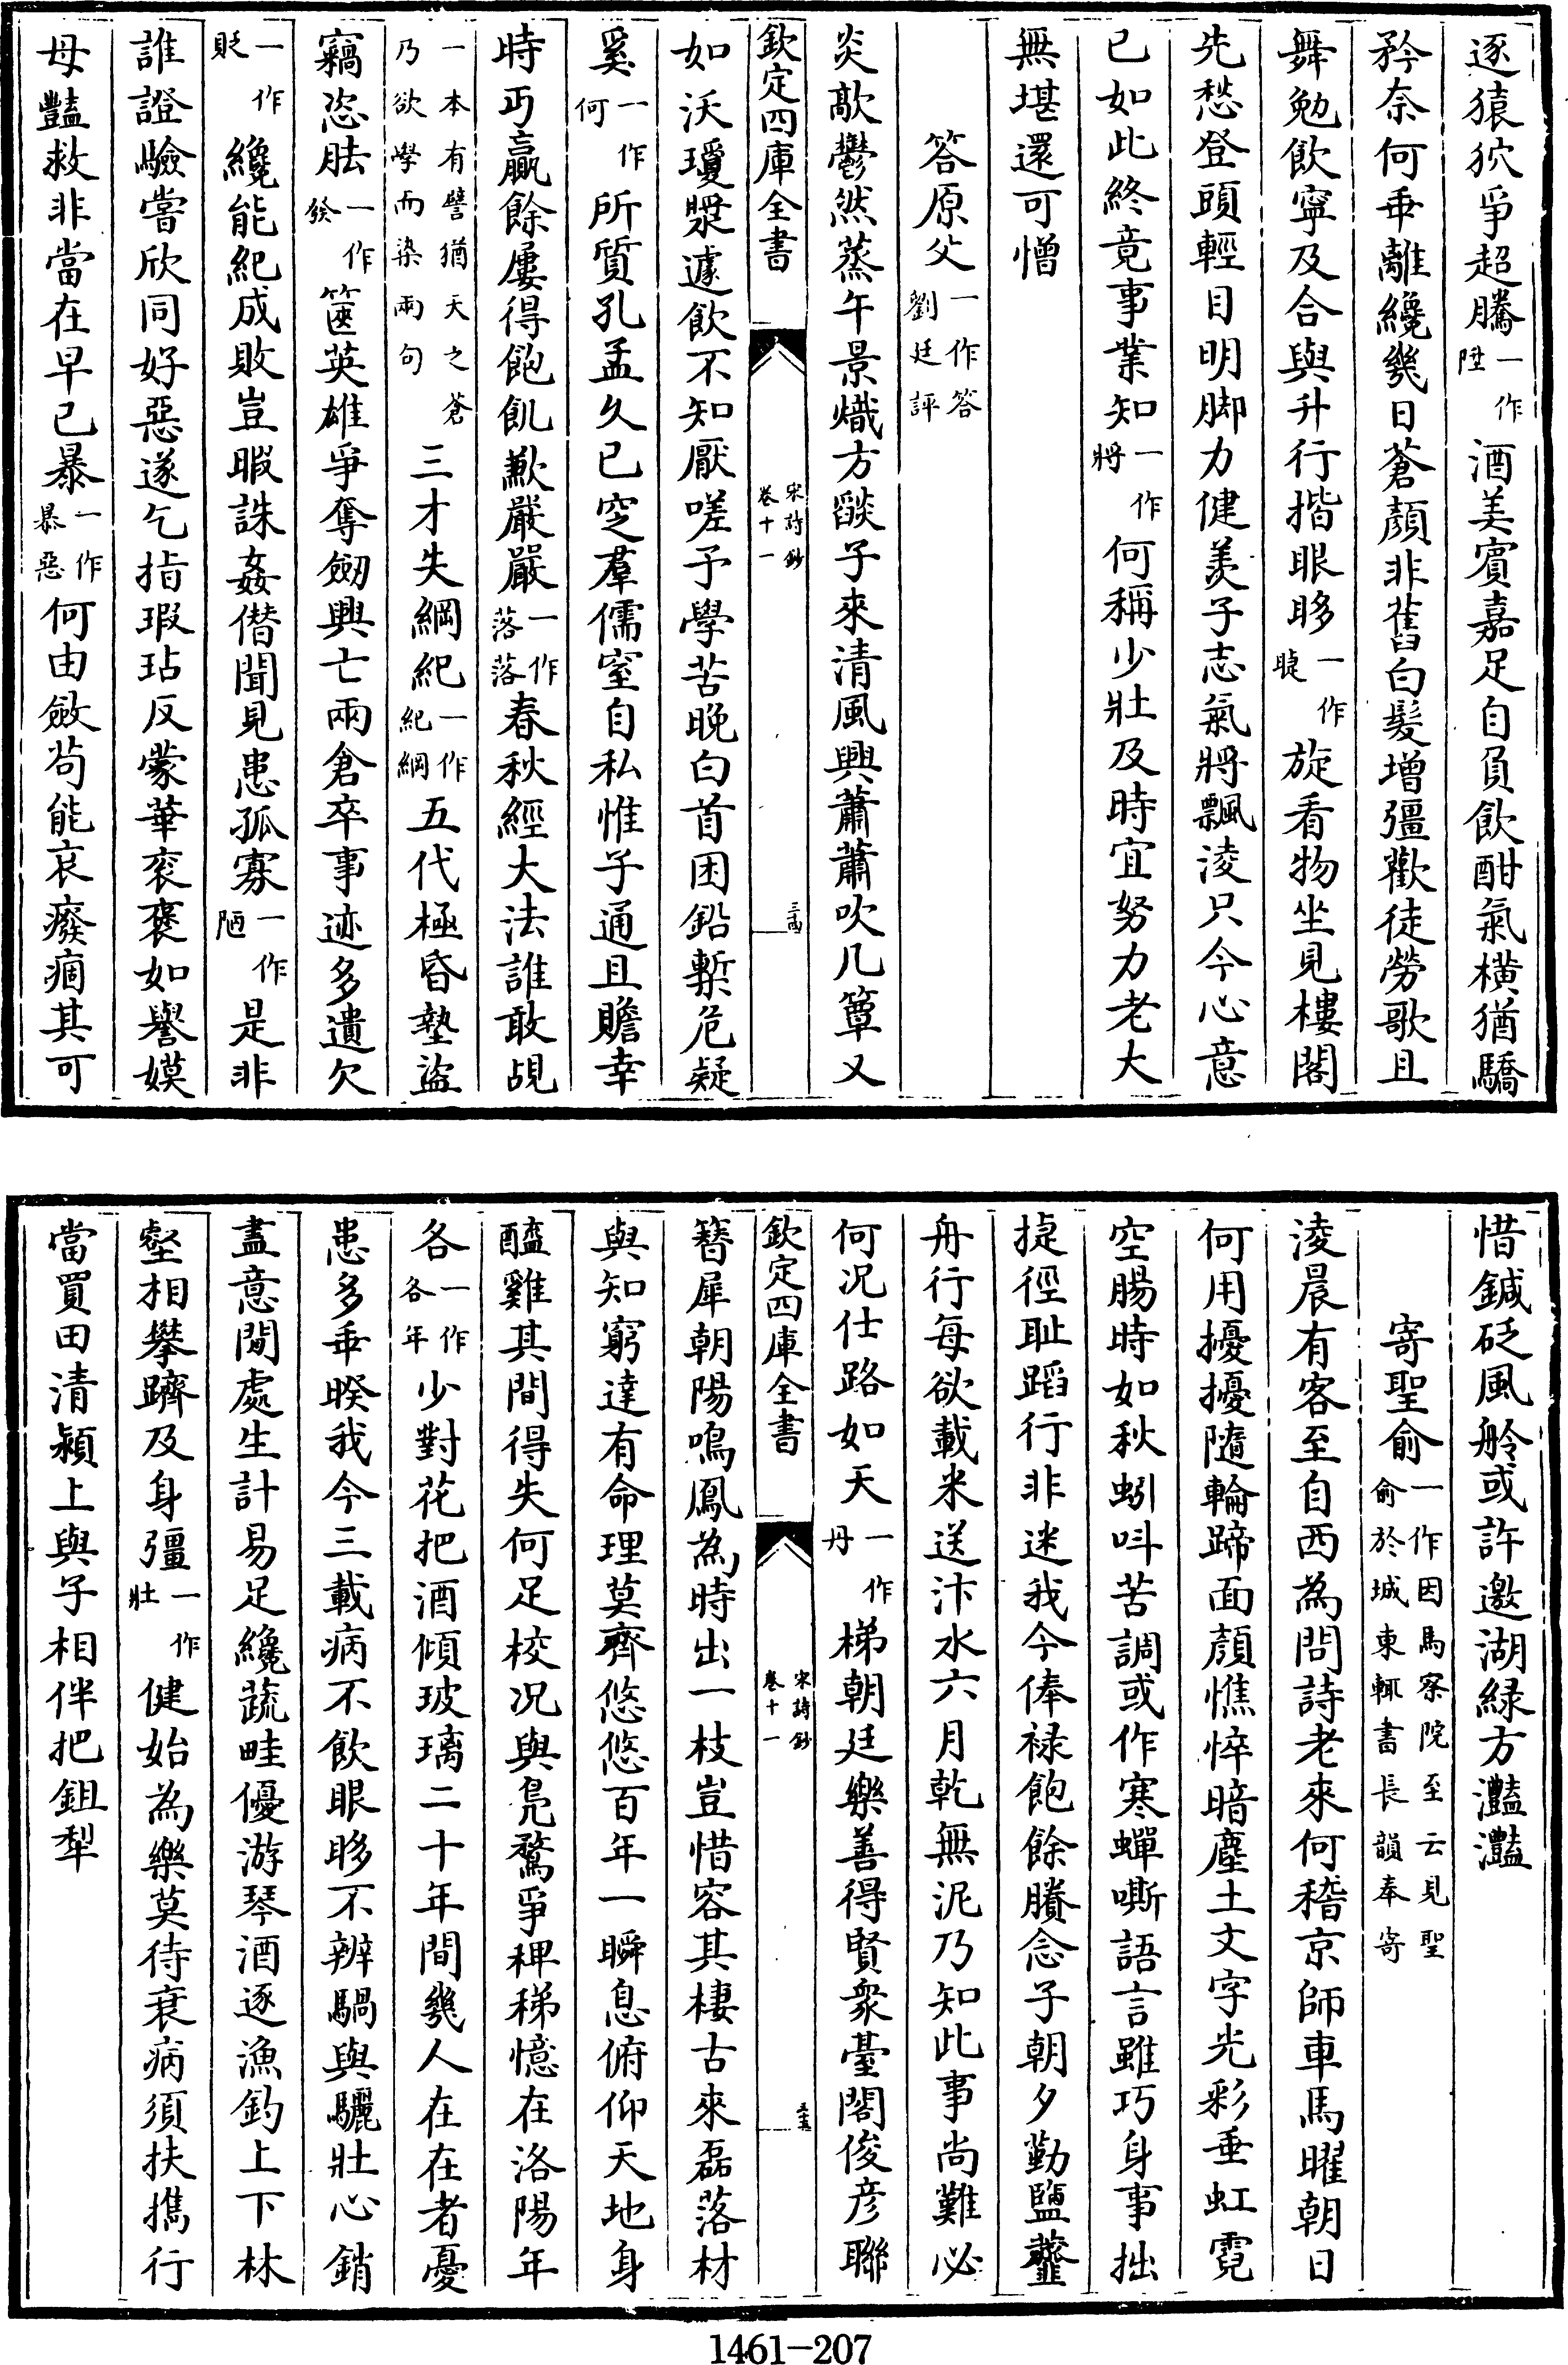 逐猿狖爭超騰一作陞酒美賓嘉足自負飲酣氣橫猶驕
矜奈何乖離纔幾日蒼顏非舊白髮增彊歡徒勞歌且
舞勉飲寧及合與升行揩眼眵一作𥇥旋看物坐見樓閣
先愁登頭輕目明脚力健羨子志氣將飄淩只今心意
已如此終竟事業知一作將何稱少壯及時宜努力老大
無堪還可憎
答原父一作答劉廷評
炎歊鬱然蒸午景熾方燄子來清風興蕭蕭吹几簟又
欽定四庫全書 宋詩鈔卷十一 三十四
如沃瓊漿遽飲不知厭嗟予學苦晚白首困鉛槧危疑
奚一作何所質孔孟久已窆羣儒窒自私惟子通且贍幸
時丐贏餘屢得飽飢歉嚴嚴一作落落春秋經大法誰敢覘
一本有譬猶天之蒼乃欲學而染兩句三才失綱紀一作紀綱五代極昏墊盜
竊恣胠一作發篋英雄爭奪劒興亡兩倉卒事迹多遺欠
一作貶纔能紀成敗豈暇誅姦僭聞見患孤寡一作陋是非
誰證驗嘗欣同好惡遂乞指瑕玷反蒙華衮褒如譽嫫
母豔救非當在早已暴一作暴惡何由斂苟能哀癈痼其可
惜鍼砭風舲或許邀湖緑方灩灩
寄聖俞一作因馬察院至云見聖俞於城東輒書長韻奉寄
淩晨有客至自西為問詩老來何稽京師車馬曜朝日
何用擾擾隨輪蹄面顏憔悴暗塵土文字光彩垂虹霓
空腸時如秋蚓呌苦調或作寒蟬嘶語言雖巧身事拙
捷徑耻蹈行非迷我今俸禄飽餘賸念子朝夕勤鹽虀
舟行每欲載米送汴水六月乾無泥乃知此事尚難必
何况仕路如天一作丹梯朝廷樂善得賢衆臺閣俊彦聯
欽定四庫全書 宋詩鈔卷十一 三十五
簪犀朝陽鳴鳳為時出一枝豈惜容其棲古來磊落材
與知窮達有命理莫齊悠悠百年一瞬息俯仰天地身
醯雞其間得失何足校况與鳧鶩爭稗稊憶在洛陽年
各一作各年少對花把酒傾玻璃二十年間幾人在在者憂
患多乖暌我今三載病不飲眼眵不辨騧與驪壯心銷
盡意閒處生計易足纔蔬畦優游琴酒逐漁釣上下林
壑相攀躋及身彊一作壯健始為樂莫待衰病須扶攜行
當買田清潁上與子相伴把鉏犁
1461-207